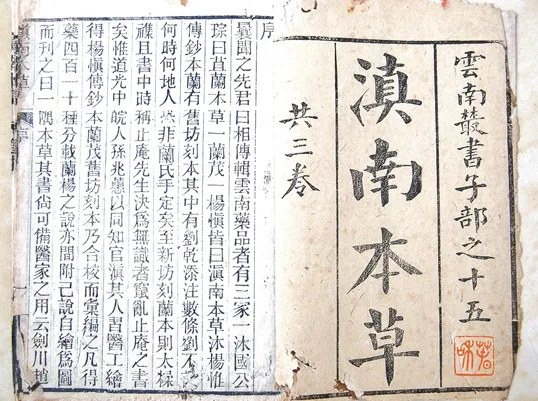 雲南叢書子部之十五
滇南本草
共三卷
序
曩聞之先君曰相傳輯雲南藥品者有三家一沐國公
琮曰苴蘭本草一蘭茂一楊慎皆曰滇南本草沐楊惟
傳鈔本蘭有舊坊刻本其中有劉乾添注數條劉不
何時何地人然非蘭氏手定矣至新坊刻蘭本則太
襍且書中時稱止庵先生決爲無識者竄亂止庵之書
矣惟道光中皖人孫兆蕙以同知官滇其人習醫工繪
得楊慎傳鈔本蘭茂舊坊刻本乃合校而彙編之凡得
藥四百一十種分載蘭楊之說亦間附己說自繪爲圖
而刊之曰一隅本草其書尙可備醫家之用云劍川趙